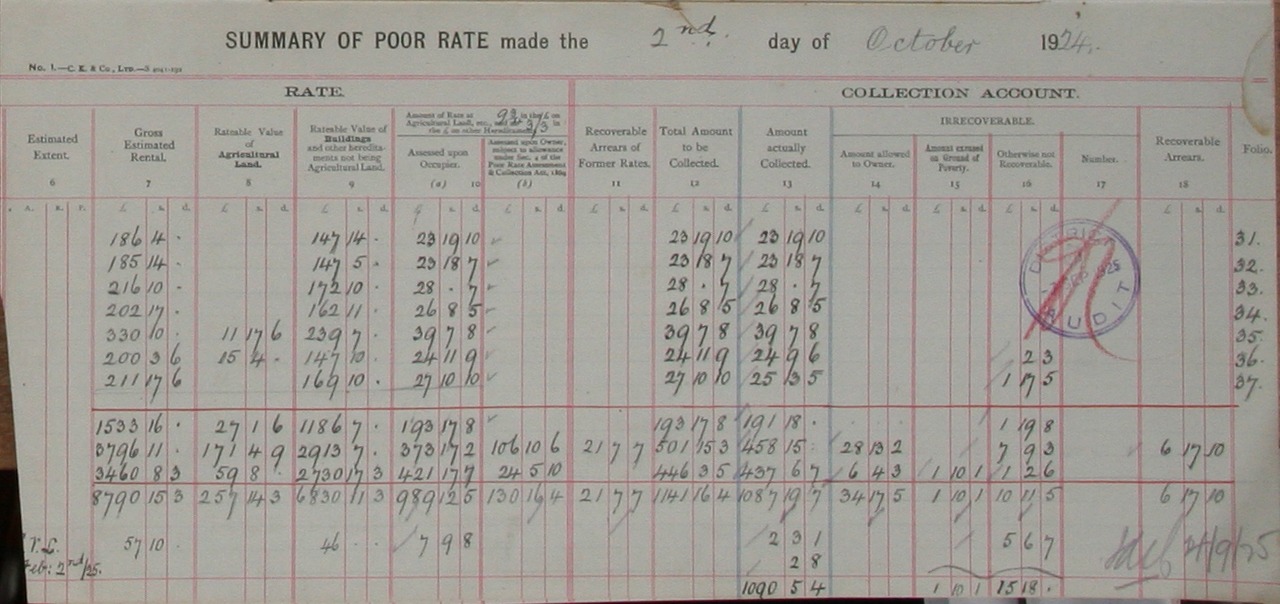 SUMMARY OF POOR RATE made the 2nd. day of October 1924.
No. 1.—C. E. & Co., Ltd.—S
RATE. COLLECTION ACCOUNT.
Estimated Extent. 6
Gross Estimated Rental. 7
Rateable Value of Agricultural Land. 8
Rateable Value of Buildings and other heredita- ments not being Agricultural Land. 9
Amount of Rate at in the £ on Agricultural Land, etc., and at 3/3 in the £ on other Hereditaments
Assessed upon Occupier. (a) 10
Assessed upon Owner, subject to allowance under Sec. 4 of the Poor Rate Assessment & Collection Act, 1869 (b)
Recoverable Arrears of Former Rates. 11
Total Amount to be Collected. 12
Amount actually Collected. 13
IRRECOVERABLE.
Amount allowed to Owner. 14
Amount excused on Ground of Poverty. 15
Otherwise not Recoverable. 16
Number. 17
Recoverable Arrears. 18
Folio.
A. R. P. £ s. d. £ s. d. £ s. d. £ s. d. £ s. d. £ s. d. £ s. d. £ s. d. £ s. d. £ s. d. £ s. d. £ s. d.
186 4 . 147 14 . 23 19 10 23 19 10 23 19 10 31.
185 14 . 147 5 . 23 18 7 23 18 7 23 18 7 32.
216 10 . 172 10 . 28 . 7 28 . 7 28 . 7 33.
202 17 . 162 11 . 26 8 5 26 8 5 26 8 5 34.
330 10 . 11 17 6 239 7 . 39 7 8 39 7 8 39 7 8 35.
200 3 6 15 4 . 147 10 . 24 11 9 24 11 9 24 9 6 2 3 36.
211 17 6 169 10 . 27 10 10 27 10 10 25 13 5 1 17 5 37.
1533 16 . 27 1 6 1186 7 . 193 17 8 193 17 8 191 18 . 1 19 8
3796 11 . 171 4 9 2913 7 . 373 17 2 106 10 6 21 7 7 501 15 3 458 15 . 28 13 2 7 9 3 6 17 10
3460 8 3 59 8 . 2730 17 3 421 17 7 24 5 10 446 3 5 437 6 7 6 4 3 1 10 1 1 2 6
8790 15 3 257 14 3 6830 11 3 989 12 5 130 16 4 21 7 7 1141 16 4 1087 19 7 34 17 5 1 10 1 10 11 5 6 17 10
57 10 . 46 . . 7 9 8 2 3 1 5 6 7
Feb: 2nd/25. 2 8
1090 5 4 1 10 1 15 18 .
DISTRICT AUDIT
SEP 1925
24/9/25